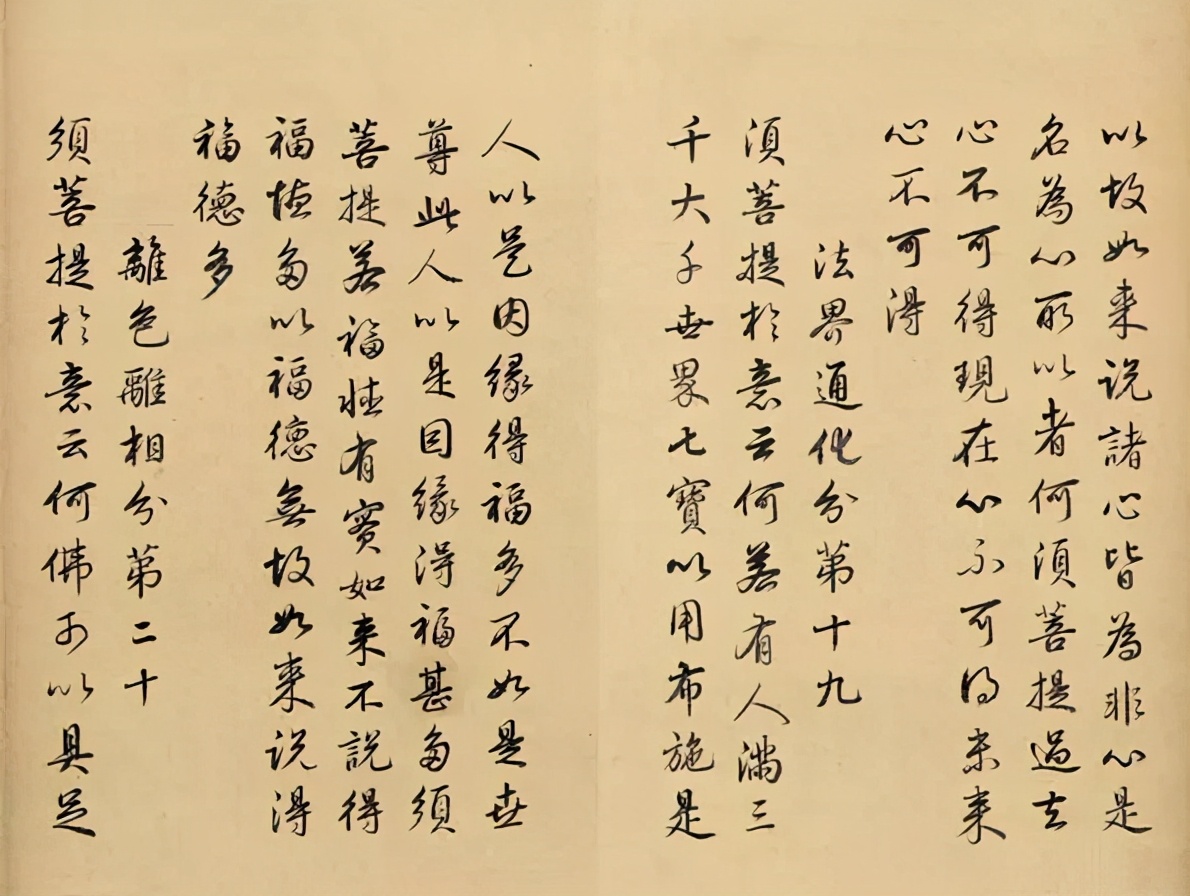 以故如来说諸心皆為非心是
名為心所以者何須菩提過去
心不可得現在心不可得未来
心不可得
法界通化分第十九
須菩提於意云何若有人滿三
千大千世界七寶以用布施是
人以是因緣得福多不如是世
尊此人以是因緣得福甚多須
菩提若福德有實如来不說得
福德多以福德無故如来说得
福德多
離色離相分第二十
須菩提於意云何佛可以具足